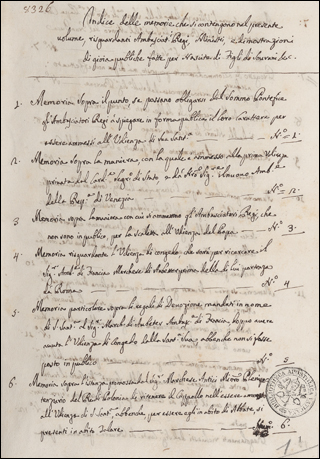 8326
Indice delle memorie che si contengono nel presente
volume riguardanti Ambasciat.i Regj, Ministri, e dimostrazioni
di gioja pubbliche fatte, per Nascita di Figli de Sovrani &c.
1. Memoria sopra il punto se possano obligarsi dal Sommo Pontefice
gl'Ambasciatori Regj à spiegare in forma publica il loro Carattere per
essere ammessi all'Udienza di Sua Santità N.o 1.
2. Memoria sopra la maniera con la quale è ammesso alla prima Udienza
privata dal Card.e Segri di Stato
della Rep.ca di Venezia N.o 2.
3. Memoria sopra la maniera con cui si ammettono gl'Ambasciatori Regj, che
non sono in publico, per la Scaletta all'Udienza del Papa N.o 3.
4. Memoria riguardante l'Udienza di congedo che dovea per ricevere il
Sig.e Amb.re di Francia Marchese di Aubeterre prima della di lui partenza
da Roma N.o 4
5. Memoria particolare sopra li regali di Devozione mandati in nome
di S. Sant.à al Sig.e March. di Aubeterre Ambas.re di Francia, dopo avere
avuto l'Udienza di Congedo dalla Sant. Sua, abbenche non si fosse
posto in publico N.o 5
6. Memoria sopra l'istanza promossa dal Sig.e Marchese Antici Ministro
del Rè di Polonia, di ritenere il Cappello nell'essere
all'Udienza di S. Sant.à abbenche, per essere egli in abito di Abbate, si
presenti in abito Talare Num.o 6.
1